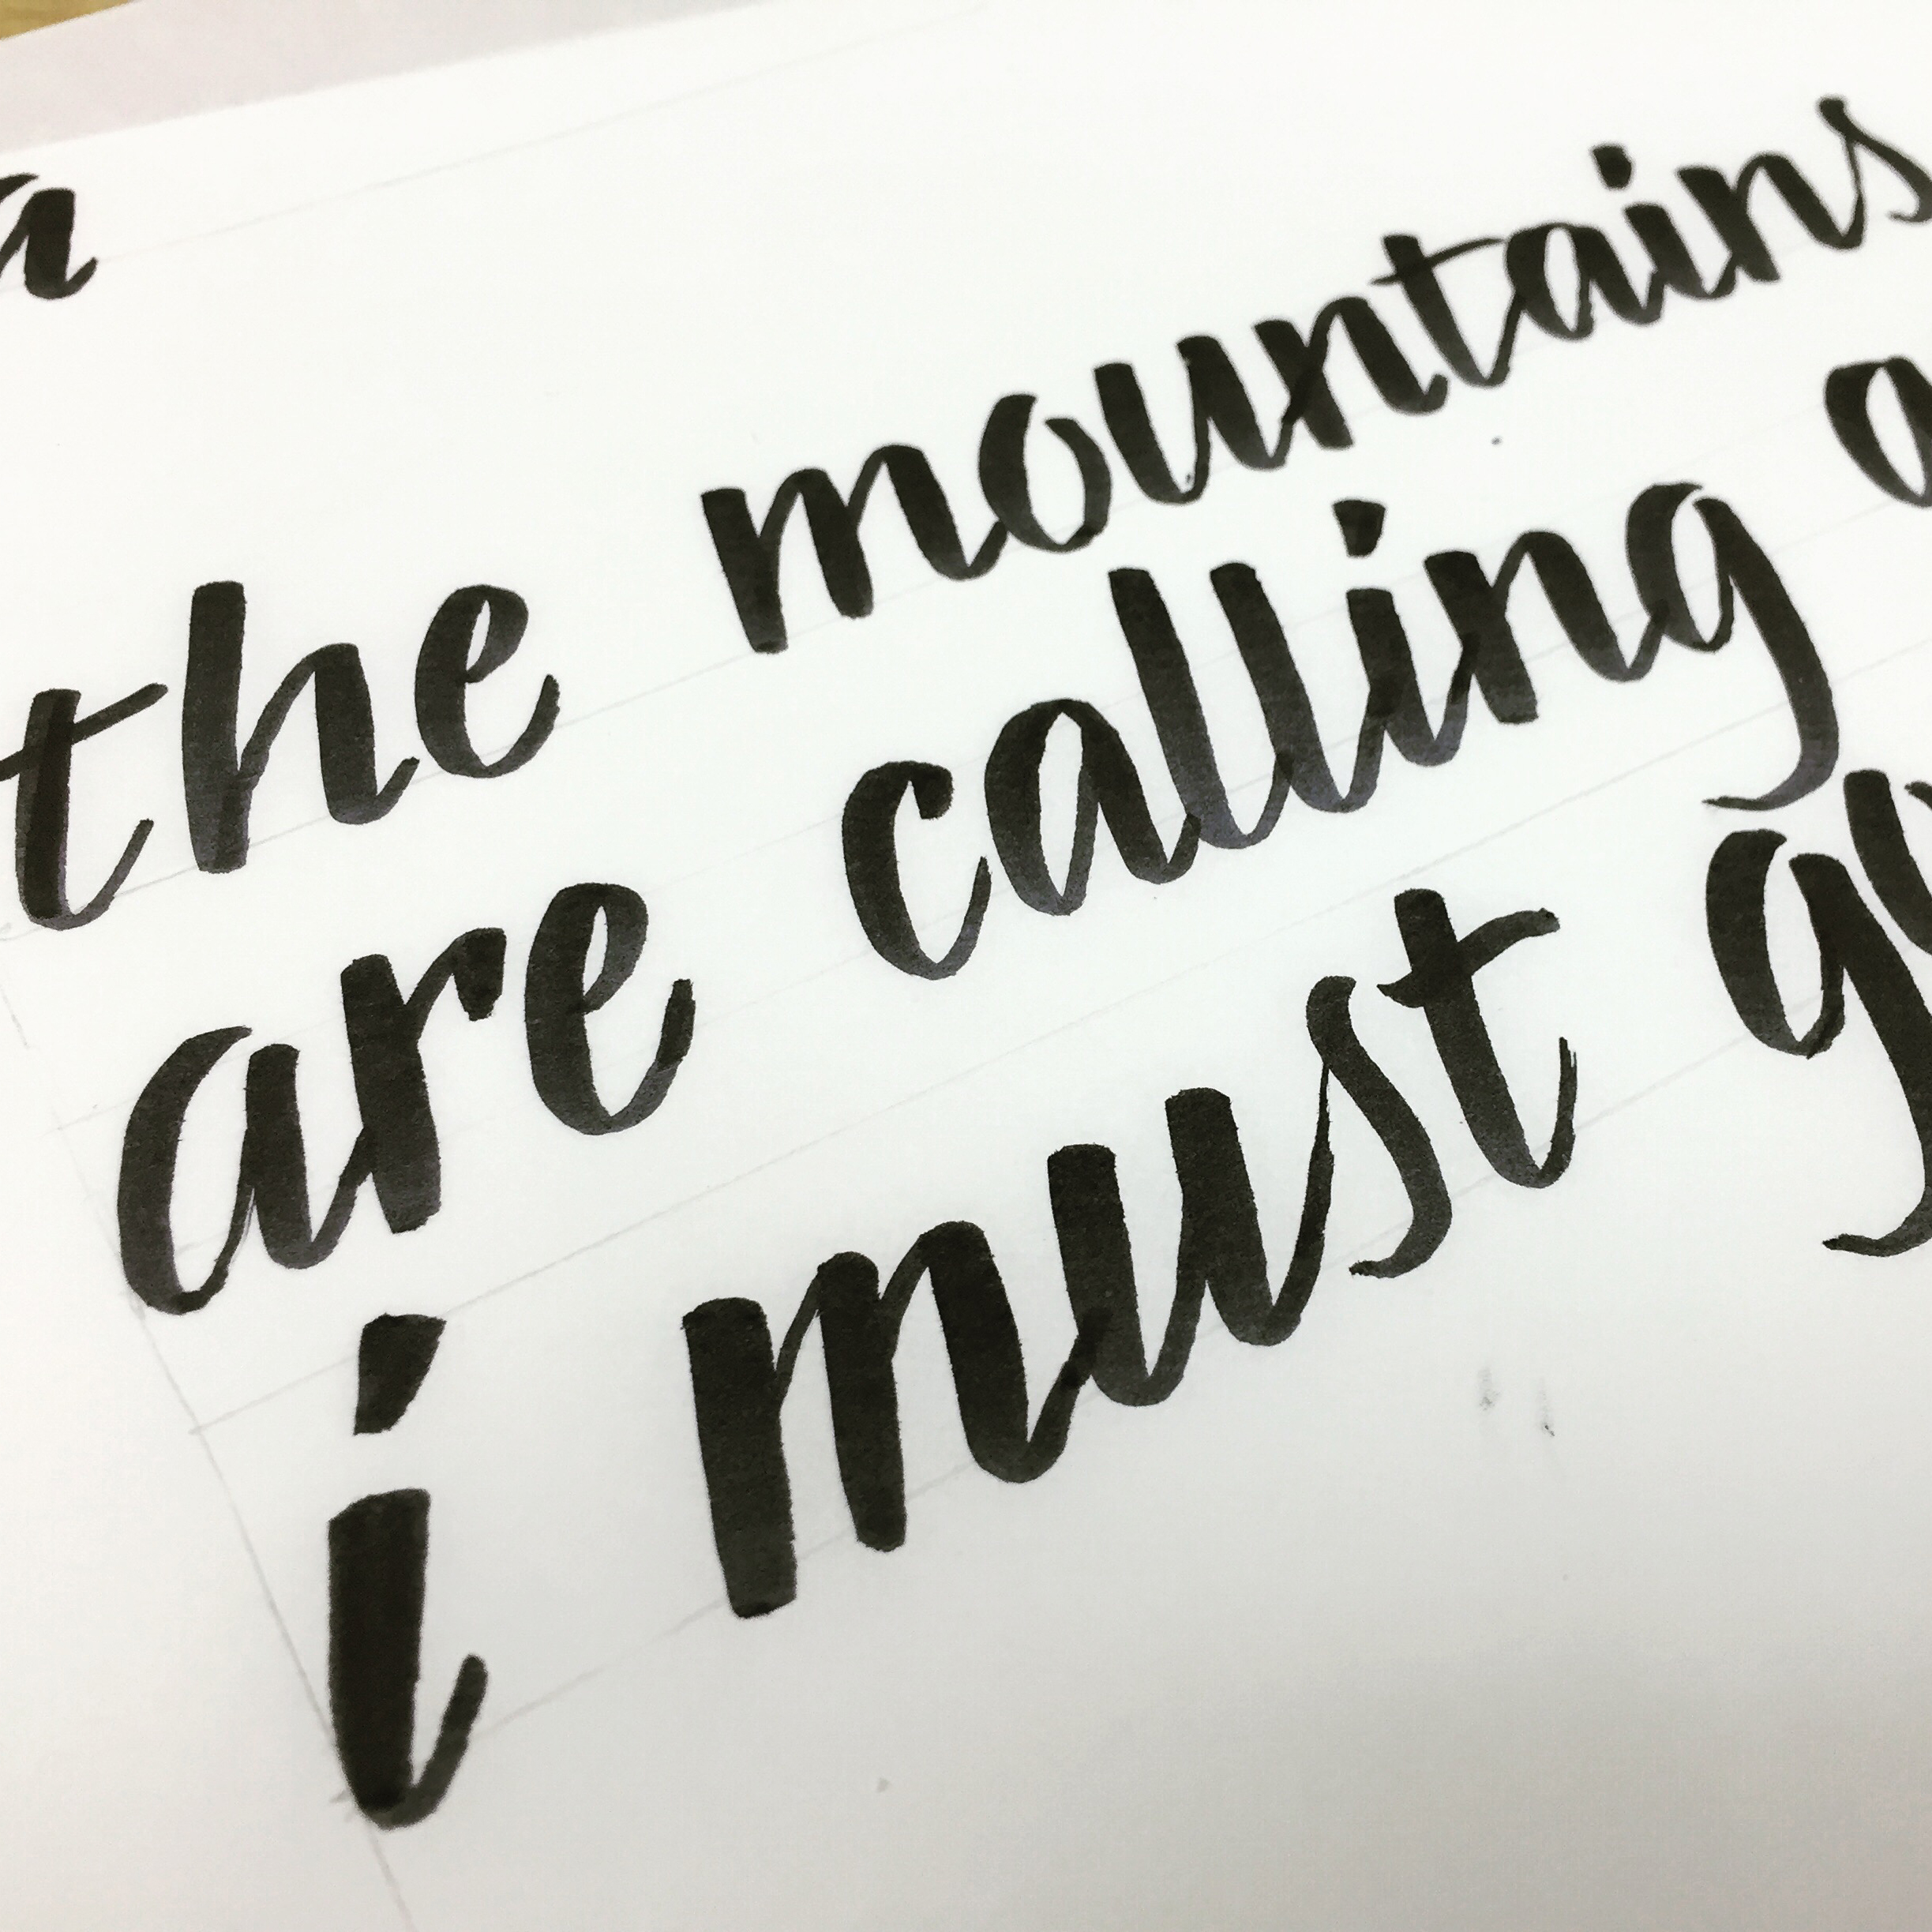 a
the mountains
are calling a
i must g